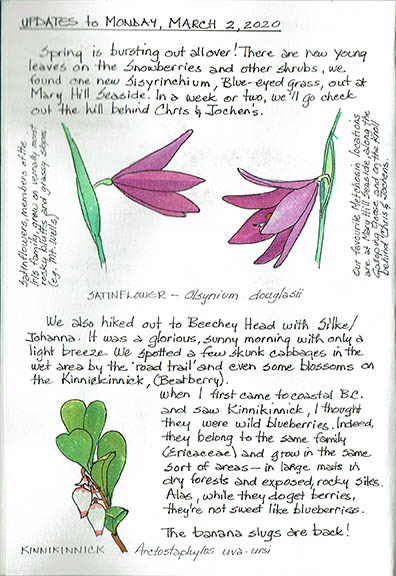 UPDATES to MONDAY, MARCH 2, 2020
Spring is bursting out all over! There are new young
leaves on the Snowberries and other shrubs, we
found one new Sisyrinchium, Blue-eyed grass, out at
Mary Hill Seaside. In a week or two, we'll go check
out the hill behind Chris & Jochen's.
Satinflowers, members of the
Iris family, grow on vernally moist
rocky bluffs and grassy slopes.
(e.g. Mt. Wells)
Our favourite Metchosin locations
are at Mary Hill Seaside, along the
Galloping Goose and on the knoll
behind Chris & Jochens.
SATINFLOWER – Olsynium douglasii
We also hiked out to Beechey Head with Silke/
Johanna. It was a glorious, sunny morning with only a
light breeze. We spotted a few skunk cabbages in the
wet area by the 'road trail' and even some blossoms on
the Kinnickinnick, (Bearberry).
When I first came to coastal B.C.
and saw Kinnikinnick, I thought
they were wild blueberries. Indeed,
they belong to the same family
(Ericaceae) and grow in the same
sort of areas – in large mats in
dry forests and exposed, rocky sites.
Alas, while they do get berries,
they're not sweet like blueberries.
The banana slugs are back!
KINNIKINNICK Arctostaphylos uva-ursi